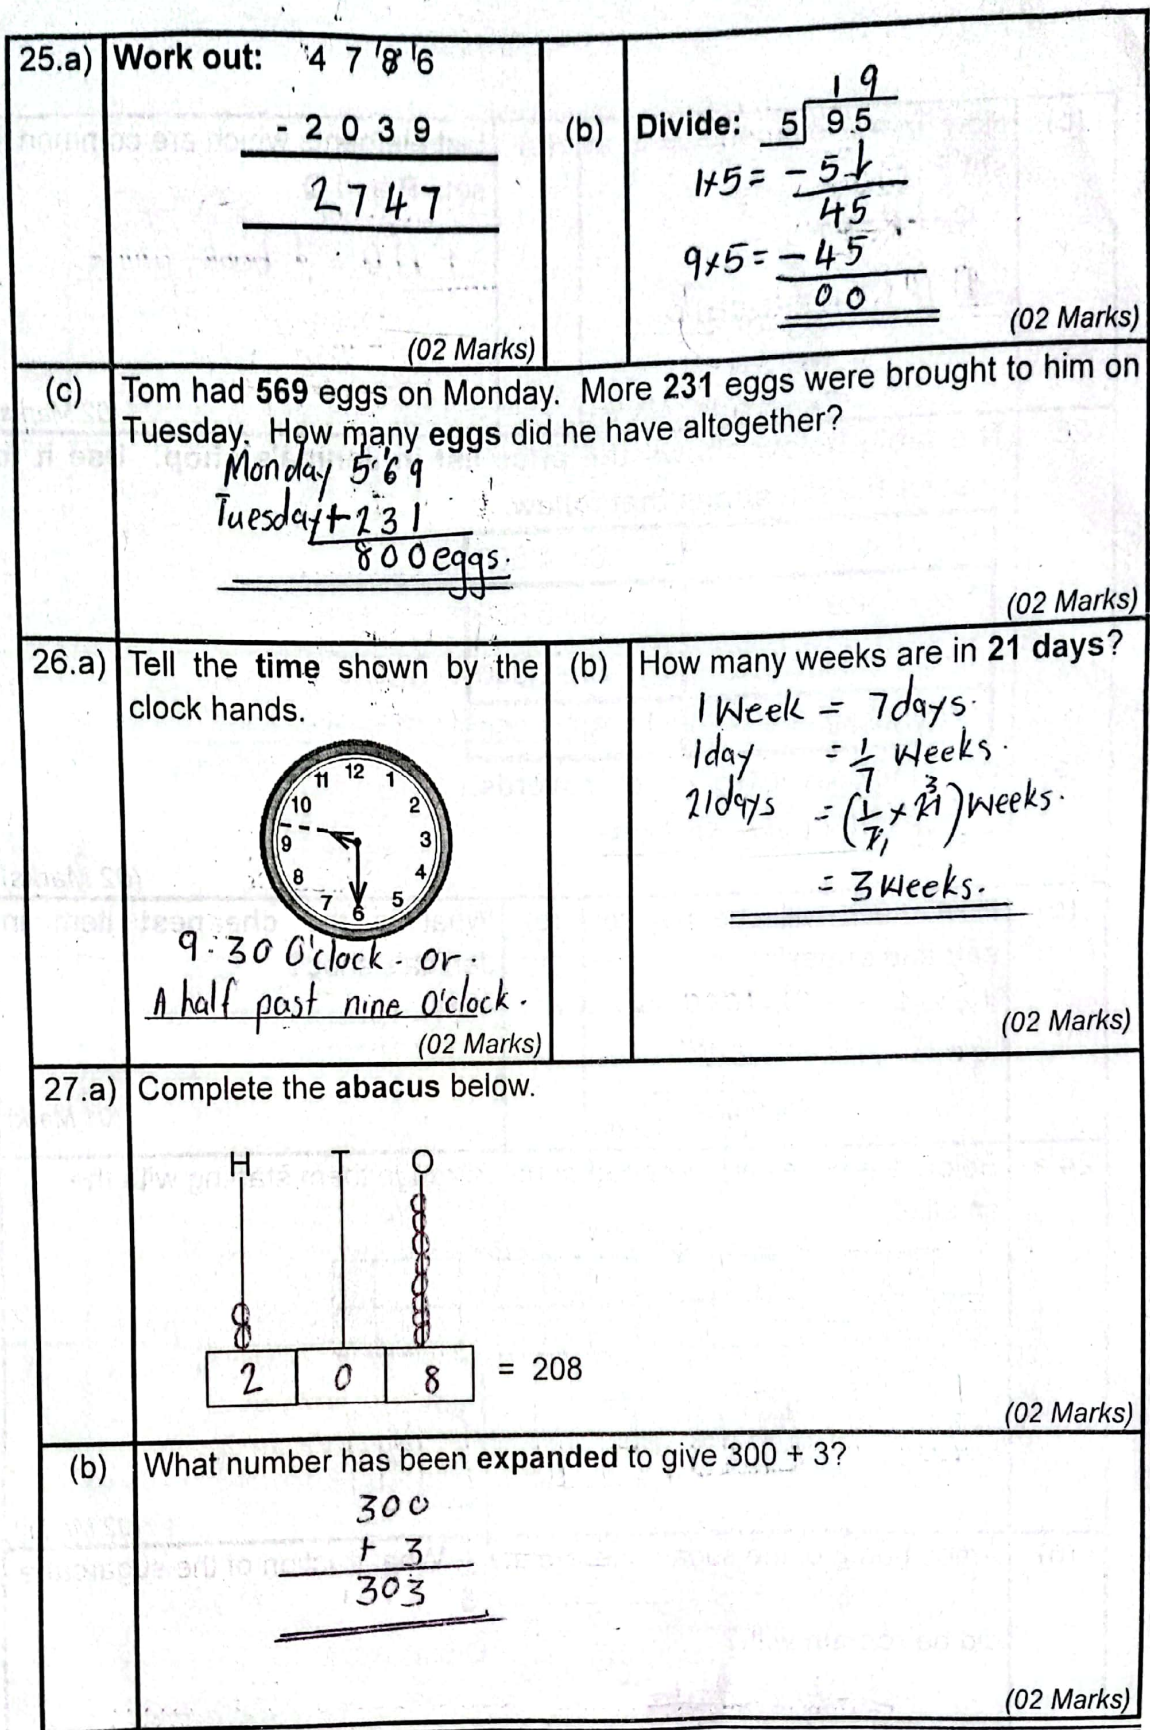 25.a) Work out: 4 7 8 6
- 2 0 3 9
2 7 4 7
(02 Marks)
(b) Divide: 1 9
5 9 5
1×5 = - 5 ↓
4 5
9×5 = - 4 5
0 0
(02 Marks)
(c) Tom had 569 eggs on Monday. More 231 eggs were brought to him on
Tuesday. How many eggs did he have altogether?
Monday 5 6 9
Tuesday + 2 3 1
8 0 0 eggs.
(02 Marks)
26.a) Tell the time shown by the
clock hands.
12 1 2 3 4 5 6 7 8 9 10 11
9:30 O'clock. or.
A half past nine O'clock.
(02 Marks)
(b) How many weeks are in 21 days?
1 Week = 7days.
1day = 1/7 Weeks.
21days = (1/7 × 21) Weeks.
= 3 Weeks.
(02 Marks)
27.a) Complete the abacus below.
H T O
2 0 8 = 208
(02 Marks)
(b) What number has been expanded to give 300 + 3?
300
+ 3
303
(02 Marks)